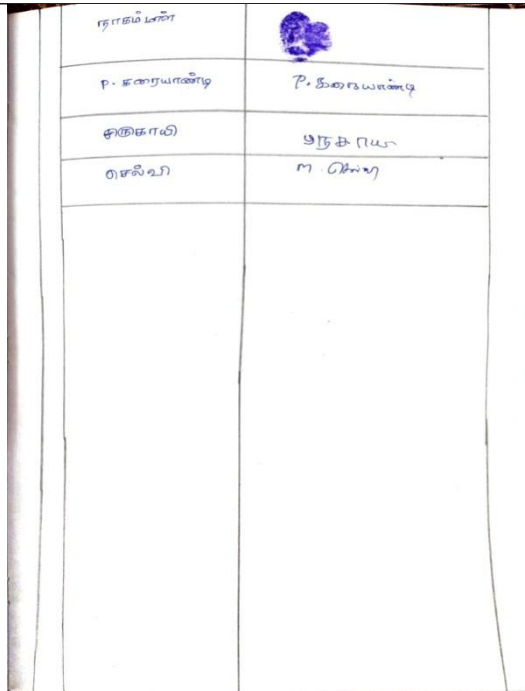 நாகம்மாள்
P. கரையாண்டி P. கரையாண்டி
அருகாயி
செல்வி m. செல்வி